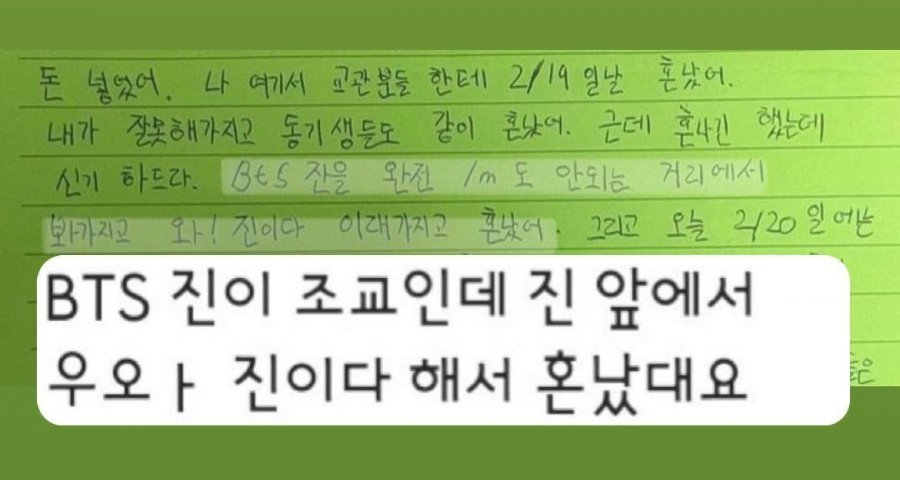 돈 넣었어. 나 여기서 교관분들 한테 2/19일날 혼났어.
내가 잘못해가지고 동기생들도 같이 혼났어. 근데 혼나긴 했는데
신기 하드라. BtS 진을 완전 1m도 안되는 거리에서
봐가지고 와! 진이다 이래가지고 혼났어. 그리고 오늘 2/20일에는
BTS 진이 조교인데 진 앞에서
우오ㅏ 진이다 해서 혼났대요